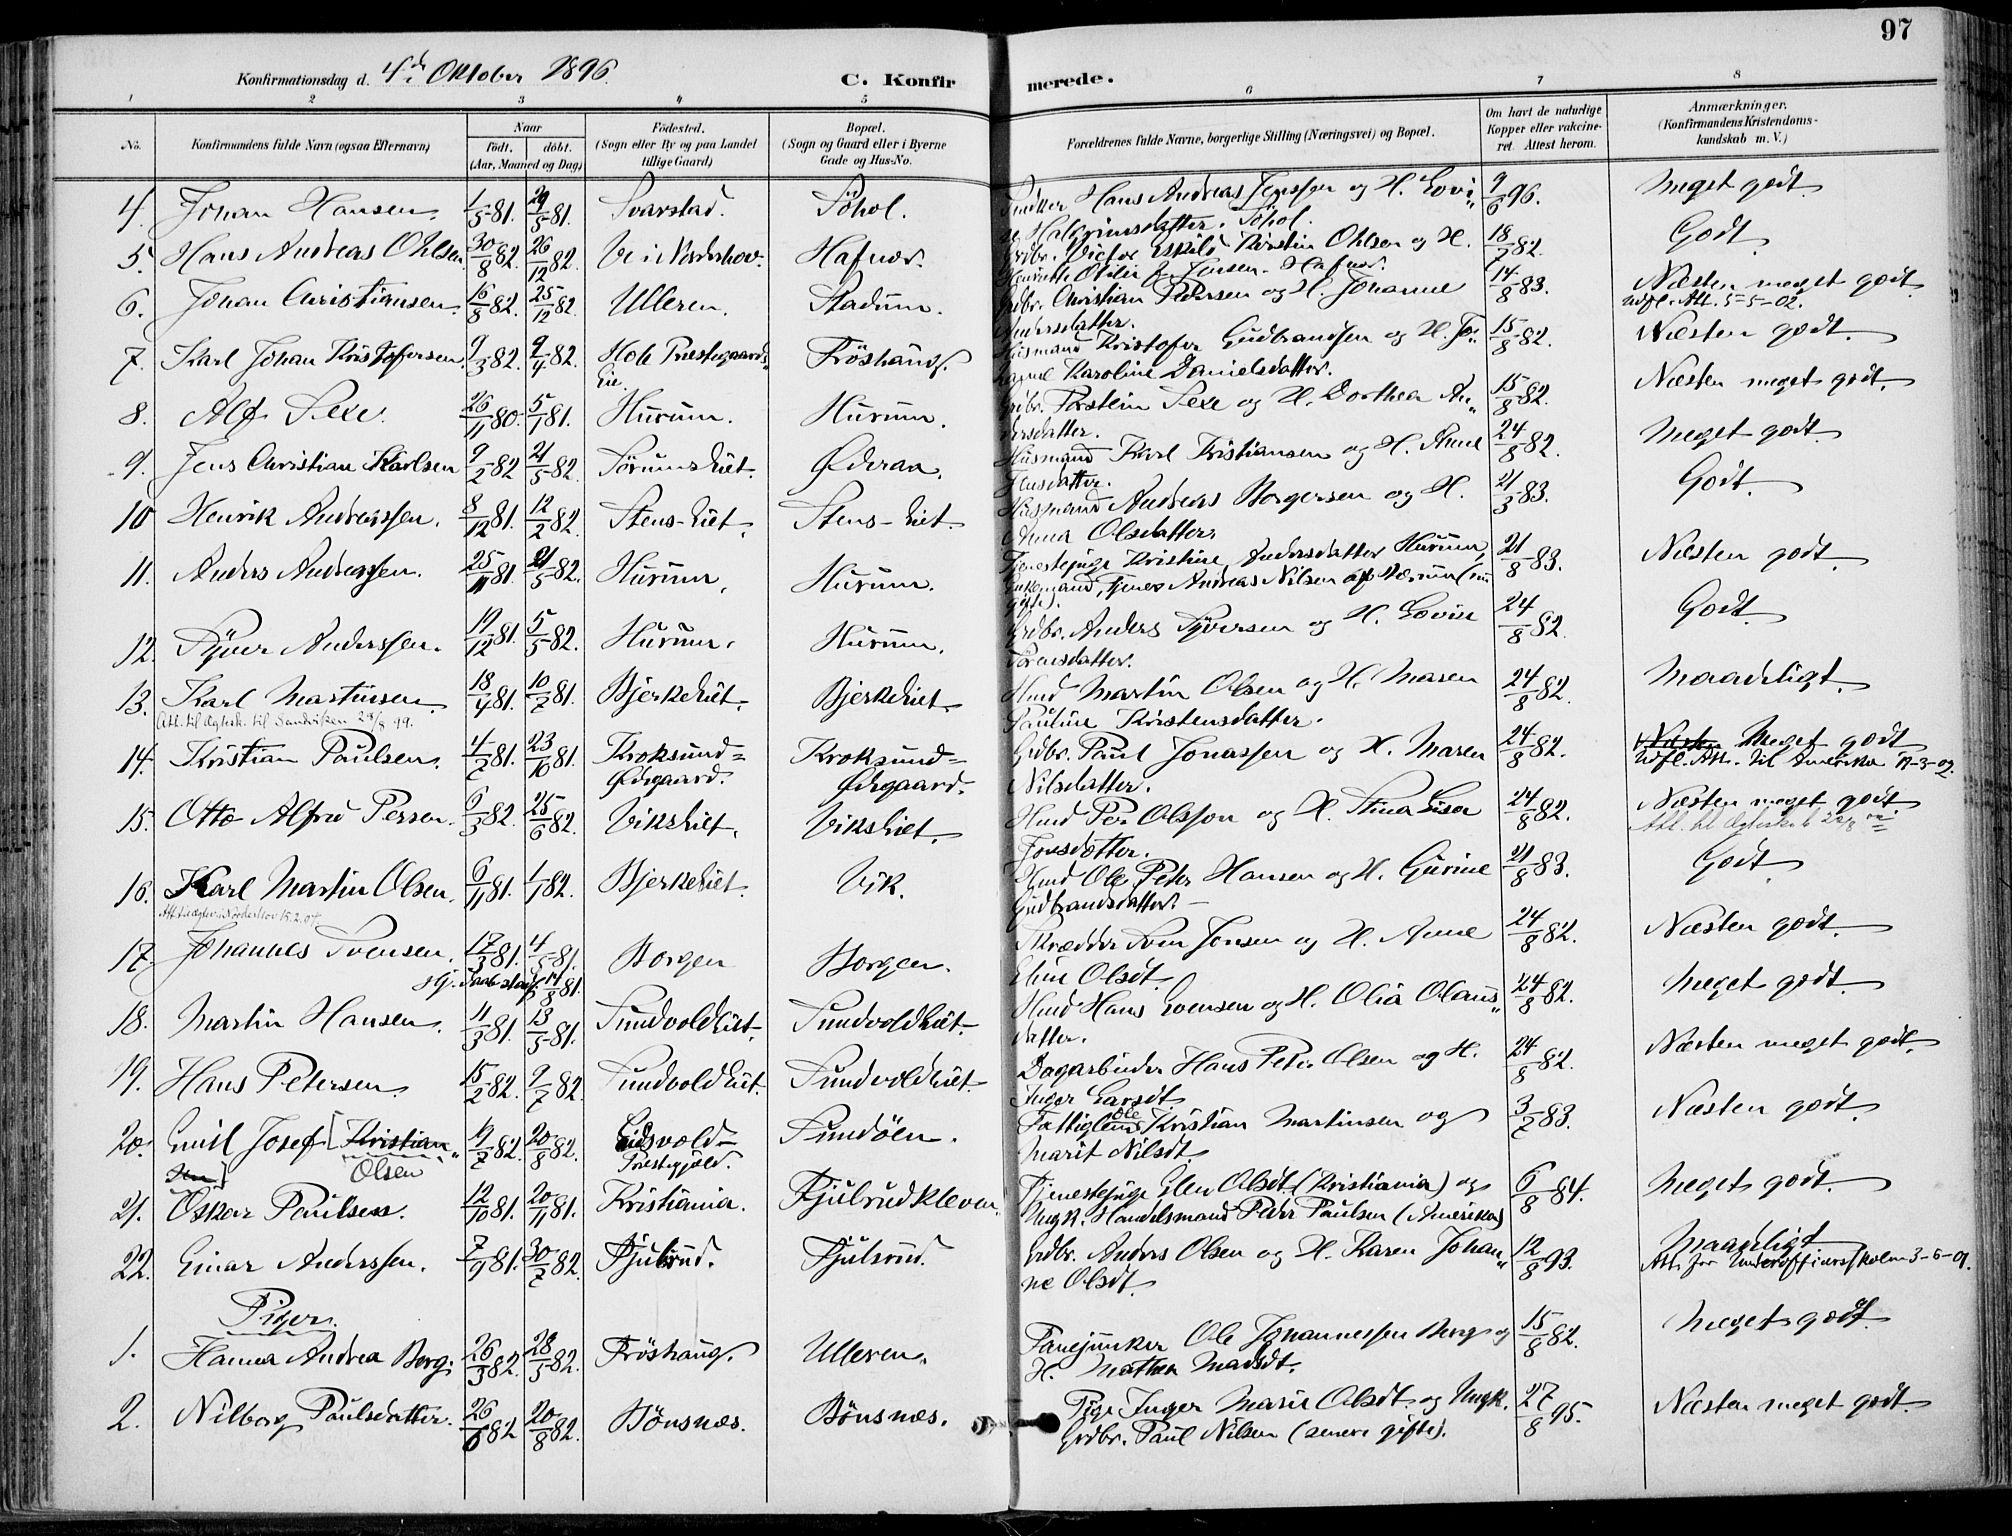 97
Konfirmationsdag d. 4de Oktober 1896.
C. Konfirmerede.
1 2 3 4 5 6 7 8
No. Konfirmandens fulde Navn (ogsaa Efternavn) Naar født. døbt. (Aar, Maaned og Dag) Fødested. (Sogn eller By og paa Landet tillige Gaard) Bopæl. (Sogn og Gaard eller i Byerne Gade og Hus-No. Forældrenes fulde Navne, borgerlige Stilling (Næringsvei) og Bopæl. Om havt de naturlige Kopper eller vakcineret. Attest herom. Anmærkninger. (Konfirmandens Kristendomskundskab m. V.)
4. Johan Hansen. 1/5 81. 29/5 81. Svarstad. Söhol. Hans Andreas Jenssen og H. Lovise Halgrimsdatter. Söhol. 9/6 96. Meget godt
5. Hans Andreas Ohlsen. 30/8 82. 26/12 82. Ve i Norderhov. Hafnor. Grdbr. Victor Eskild Kerstin Ohlsen og H. Henriette Otilie J. Jensen. Hafnor. 18/7 82. Godt
6. Johan Christiansen. 16/8 82. 25/12 82. Ulleren. Stadum. Grdbr. Christian Pedersen og H. Johanne Andersdatter. 14/8 83. Næsten meget godt.
Udfl. Att. 5-5-02.
7. Karl Johan Kristoffersen. 9/3 82. 9/4 82. Hole Præstegaards Eie. Fröshaug. Husmand Kristofer Gudbrandsen og H. Johanne Karoline Danielsdatter. 15/8 82. Næsten godt.
8. Alf Sexe. 26/11 80. 5/1 81. Hurum. Hurum. Grdbr. Torstein Sexe og H. Dorthea Andersdatter. 15/8 82. Næsten meget godt.
9. Jens Christian Karlsen 9/2 82 21/5 82. Sörumseiet. Ödevaa. Husmand Karl Kristiansen og H. Anne Jensdatter. 24/8 82. Meget godt.
10 Henrik Andreassen. 8/12 81. 12/2 82. Stens-Eiet. Stens-Eiet. Husmand Andreas Borgersen og H. Anna Olsdatter. 21/3 83. Godt.
11. Anders Andreassen. 25/11 81. 21/5 82. Hurum. Hurum. Tjenestepige Kristine Andersdatter Hurum, Enkemand, tjener Andreas Nilsen af Bærum (nu gifte). 21/8 83. Næsten godt.
12. Syver Anderssen. 19/12 81. 5/5 82. Hurum. Hurum. Grdbr. Anders Syversen og H. Lovise Sörensdatter. 24/8 82. Godt.
13. Karl Martinsen. 18/4 81. 10/7 81. Bjerkeeiet. Bjerkeeiet. Hmd Martin Olsen og H. Maren Pauline Kristensdatter. 24/8 82. Maadeligt.
Att. til Ægtesk. til Sandviken 28/8 99.
14. Kristian Paulsen. 4/7 81. 23/10 81. Kroksund=Ödegaard. Kroksund=Ödegaard. Grdbr. Paul Jonassen og H. Maren Nilsdatter. 24/8 82. Næsten Meget godt
Udfl. Att. til Amerika 19-3-02.
15. Otto Alfred Persen. 6/3 82. 25/6 82. Vikseiet. Vikseiet. Hmd Per Olsson og H. Stina Lisa Jonsdotter. 24/8 82. Næsten meget godt
16. Karl Martin Olsen. 6/11 81. 1/1 82. Bjerkeeiet. Vik. Hmd Ole Peter Hansen og H. Gurine Gudbrandsdatter. 21/8 83. Godt
17. Johannes Svensen. 17/3 81. 4/5 81. Borgen Borgen. Skrædder Sven Jonsen og H. Anne Eline Olsdt. 24/8 82. Næsten godt.
18. Martin Hansen. 11/3 81. 13/5 81. Sundvoldeiet. Sundvoldeiet. Hmd Hans Evensen og H. Olia Olausdatter. 24/8 82. Meget godt.
19. Hans Petersen. 15/2 82. 9/7 82. Sundvoldeiet. Sundvoldeiet. Dagarbeider Hans Peter Olsen og H. Inger Larsdt. 24/8 82. Næsten meget godt.
20. Emil Josef [Kristiansen] Olsen 9/7 82. 20/8 82. Eidsvold Præstegjæld. Sundöen. Fattiglem Ole Kristian Martinsen og Marit Nilsdt. 3/7 83. Næsten godt.
21. Oskar Paulsen. 12/10 81. 20/11 81. Kristiania. Fjulsrudkleven. Tjenestepige Elen Olsdt. (Kristiania) og Ungk. Handelsmand Peder Paulsen (Amerika) 6/8 84. Meget godt.
22. Einar Anderssen. 7/9 81. 30/7 82. Fjulsrud. Fjulsrud. Grdbr. Anders Olsen og H. Karen Johanne Olsdt. 12/8 93. Maadeligt
Att. for Underofficersskolen 3-6-01.
Piger.
1. Hanna Andrea Borg. 26/3 82. 28/5 82. Fröshaug. Ulleren. Fanejunker Ole Johannessen Borg og H. Mathea Madsdt. 15/8 82. Meget godt
2. Nilborg Paulsdatter. 26/6 82 20/8 82. Bönsnæs. Bönsnæs. Pige Inger Marie Olsdt. og Ungk. Grdbr. Paul Nilsen (senere gifte). 27/8 95. Næsten meget godt.